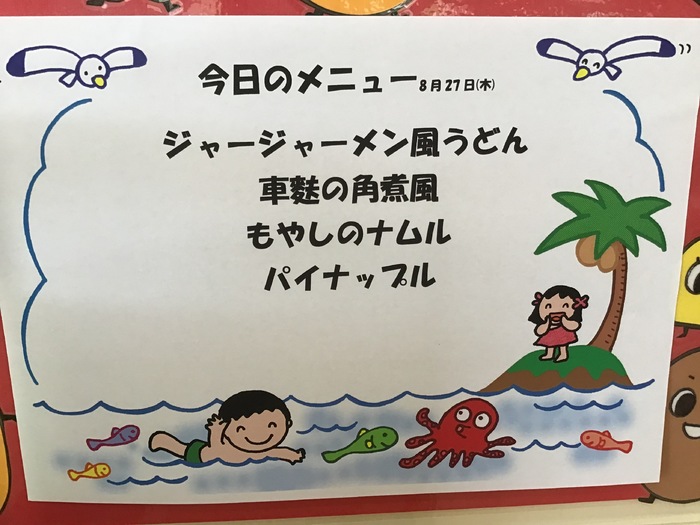 今日のメニュー8月27日(木)
ジャージャーメン風うどん
車麩の角煮風
もやしのナムル
パイナップル